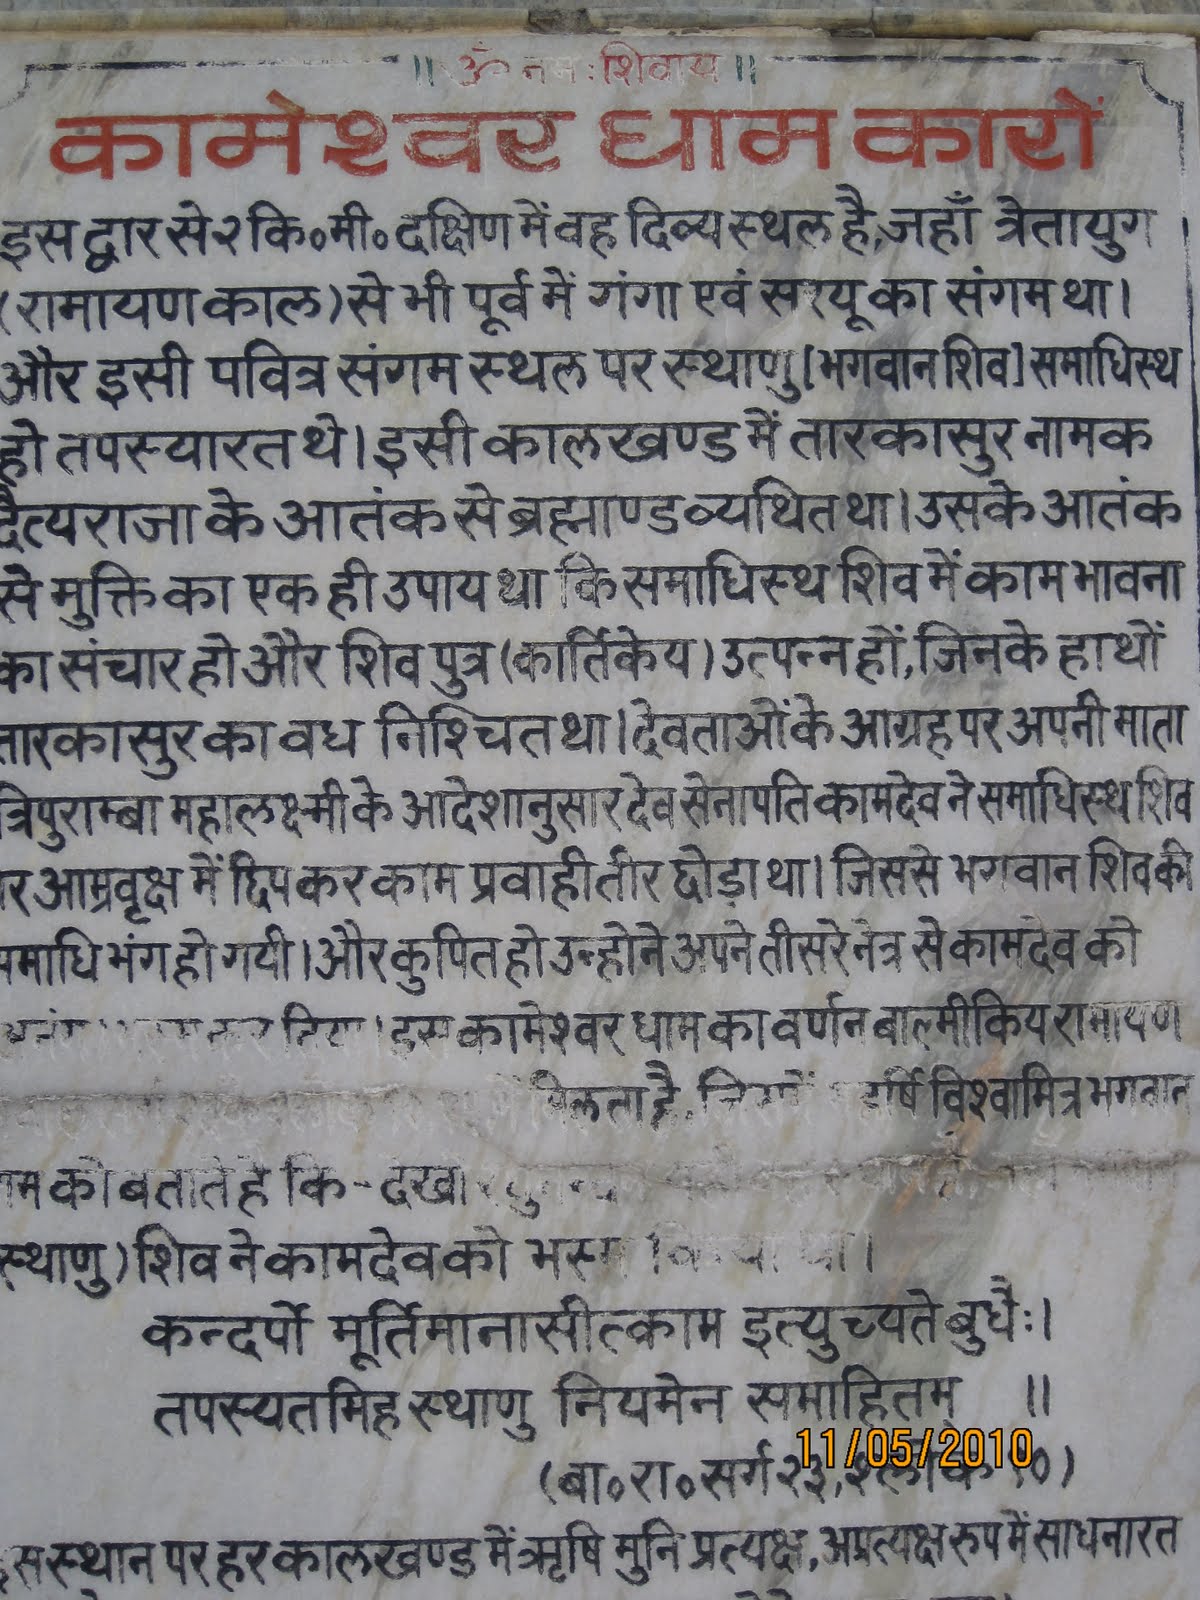 ॥ ॐ नमः शिवाय ॥
कामेश्वर धाम कारों
इस द्वार से २ कि०मी० दक्षिण में वह दिव्य स्थल है, जहाँ त्रेतायुग
(रामायण काल) से भी पूर्व में गंगा एवं सरयू का संगम था।
और इसी पवित्र संगम स्थल पर स्थाणु [भगवान शिव] समाधिस्थ
हो तपस्यारत थे। इसी कालखण्ड में तारकासुर नामक
दैत्यराजा के आतंक से ब्रह्माण्ड व्यथित था। उसके आतंक
से मुक्ति का एक ही उपाय था कि समाधिस्थ शिव में काम भावना
का संचार हो और शिव पुत्र (कार्तिकेय) उत्पन्न हों, जिनके हाथों
तारकासुर का वध निश्चित था। देवताओं के आग्रह पर अपनी माता
त्रिपुराम्बा महालक्ष्मी के आदेशानुसार देव सेनापति कामदेव ने समाधिस्थ शिव
आम्रवृक्ष में छिपकर काम प्रवाही तीर छोड़ा था। जिससे भगवान शिव की
समाधि भंग हो गयी। और कुपित हो उन्होने अपने तीसरे नेत्र से कामदेव को
इस कामेश्वर धाम का वर्णन बाल्मीकिय रामायण
विश्वामित्र भगवान
को बताते है कि - देखो
स्थाणु) शिव ने कामदेव को भस्म किया था।
कन्दर्पो मूर्तिमानासीत्काम इत्युच्यते बुधैः।
तपस्यतमिह स्थाणु नियमेन समाहितम् ॥
(बा०रा० सर्ग २३, श्लोक १०)
11/05/2010
स्थान पर हर कालखण्ड में ऋषि मुनि प्रत्यक्ष, अप्रत्यक्ष रुप में साधनारत